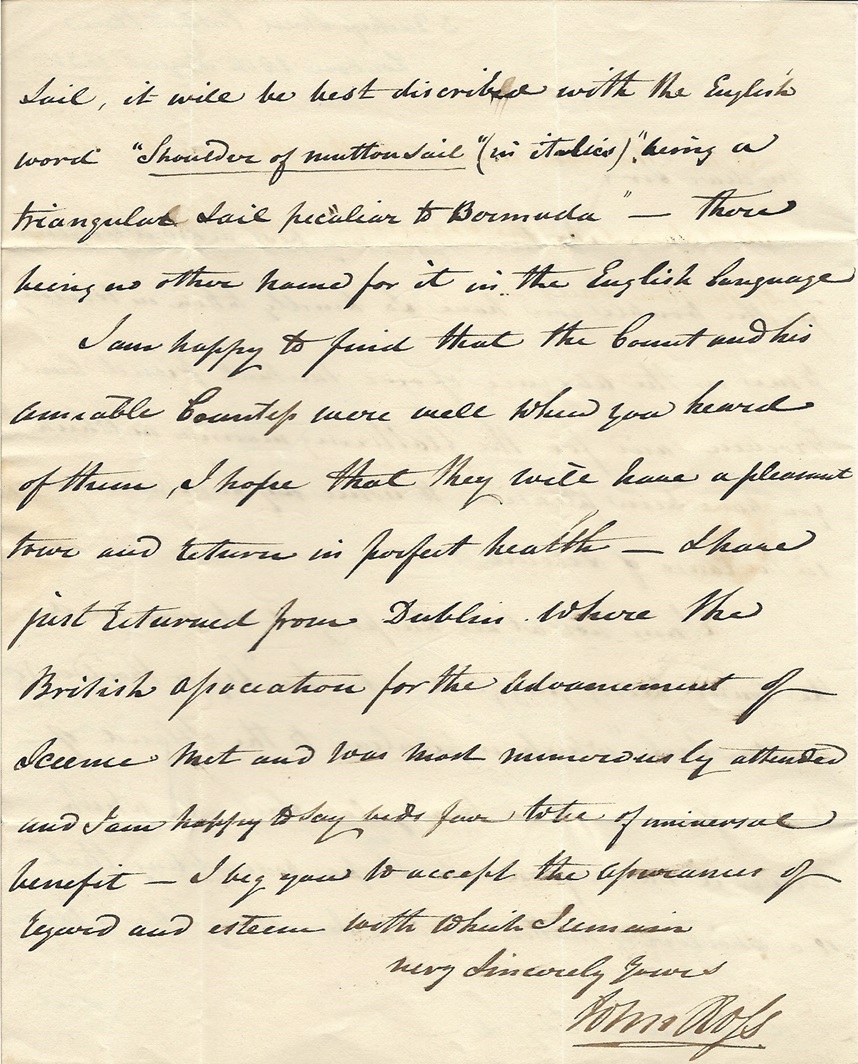 Sail, it will be best discribed with the English
word "Shoulder of mutton Sail" (in italics) "being a
triangular Sail peculiar to Bermuda" — there
being no other name for it in the English Language
I am happy to find that the Count and his
amiable Countess were well when you heard
of them, I hope that they will have a pleasant
tour and return in perfect health — I have
just returned from Dublin where the
British Association for the Advancement of
Science met and was most numerously attended
and I am happy to say bids fair to be of universal
benefit — I beg you to accept the assurances of
regard and esteem with which I remain
very Sincerely yours
John Ross